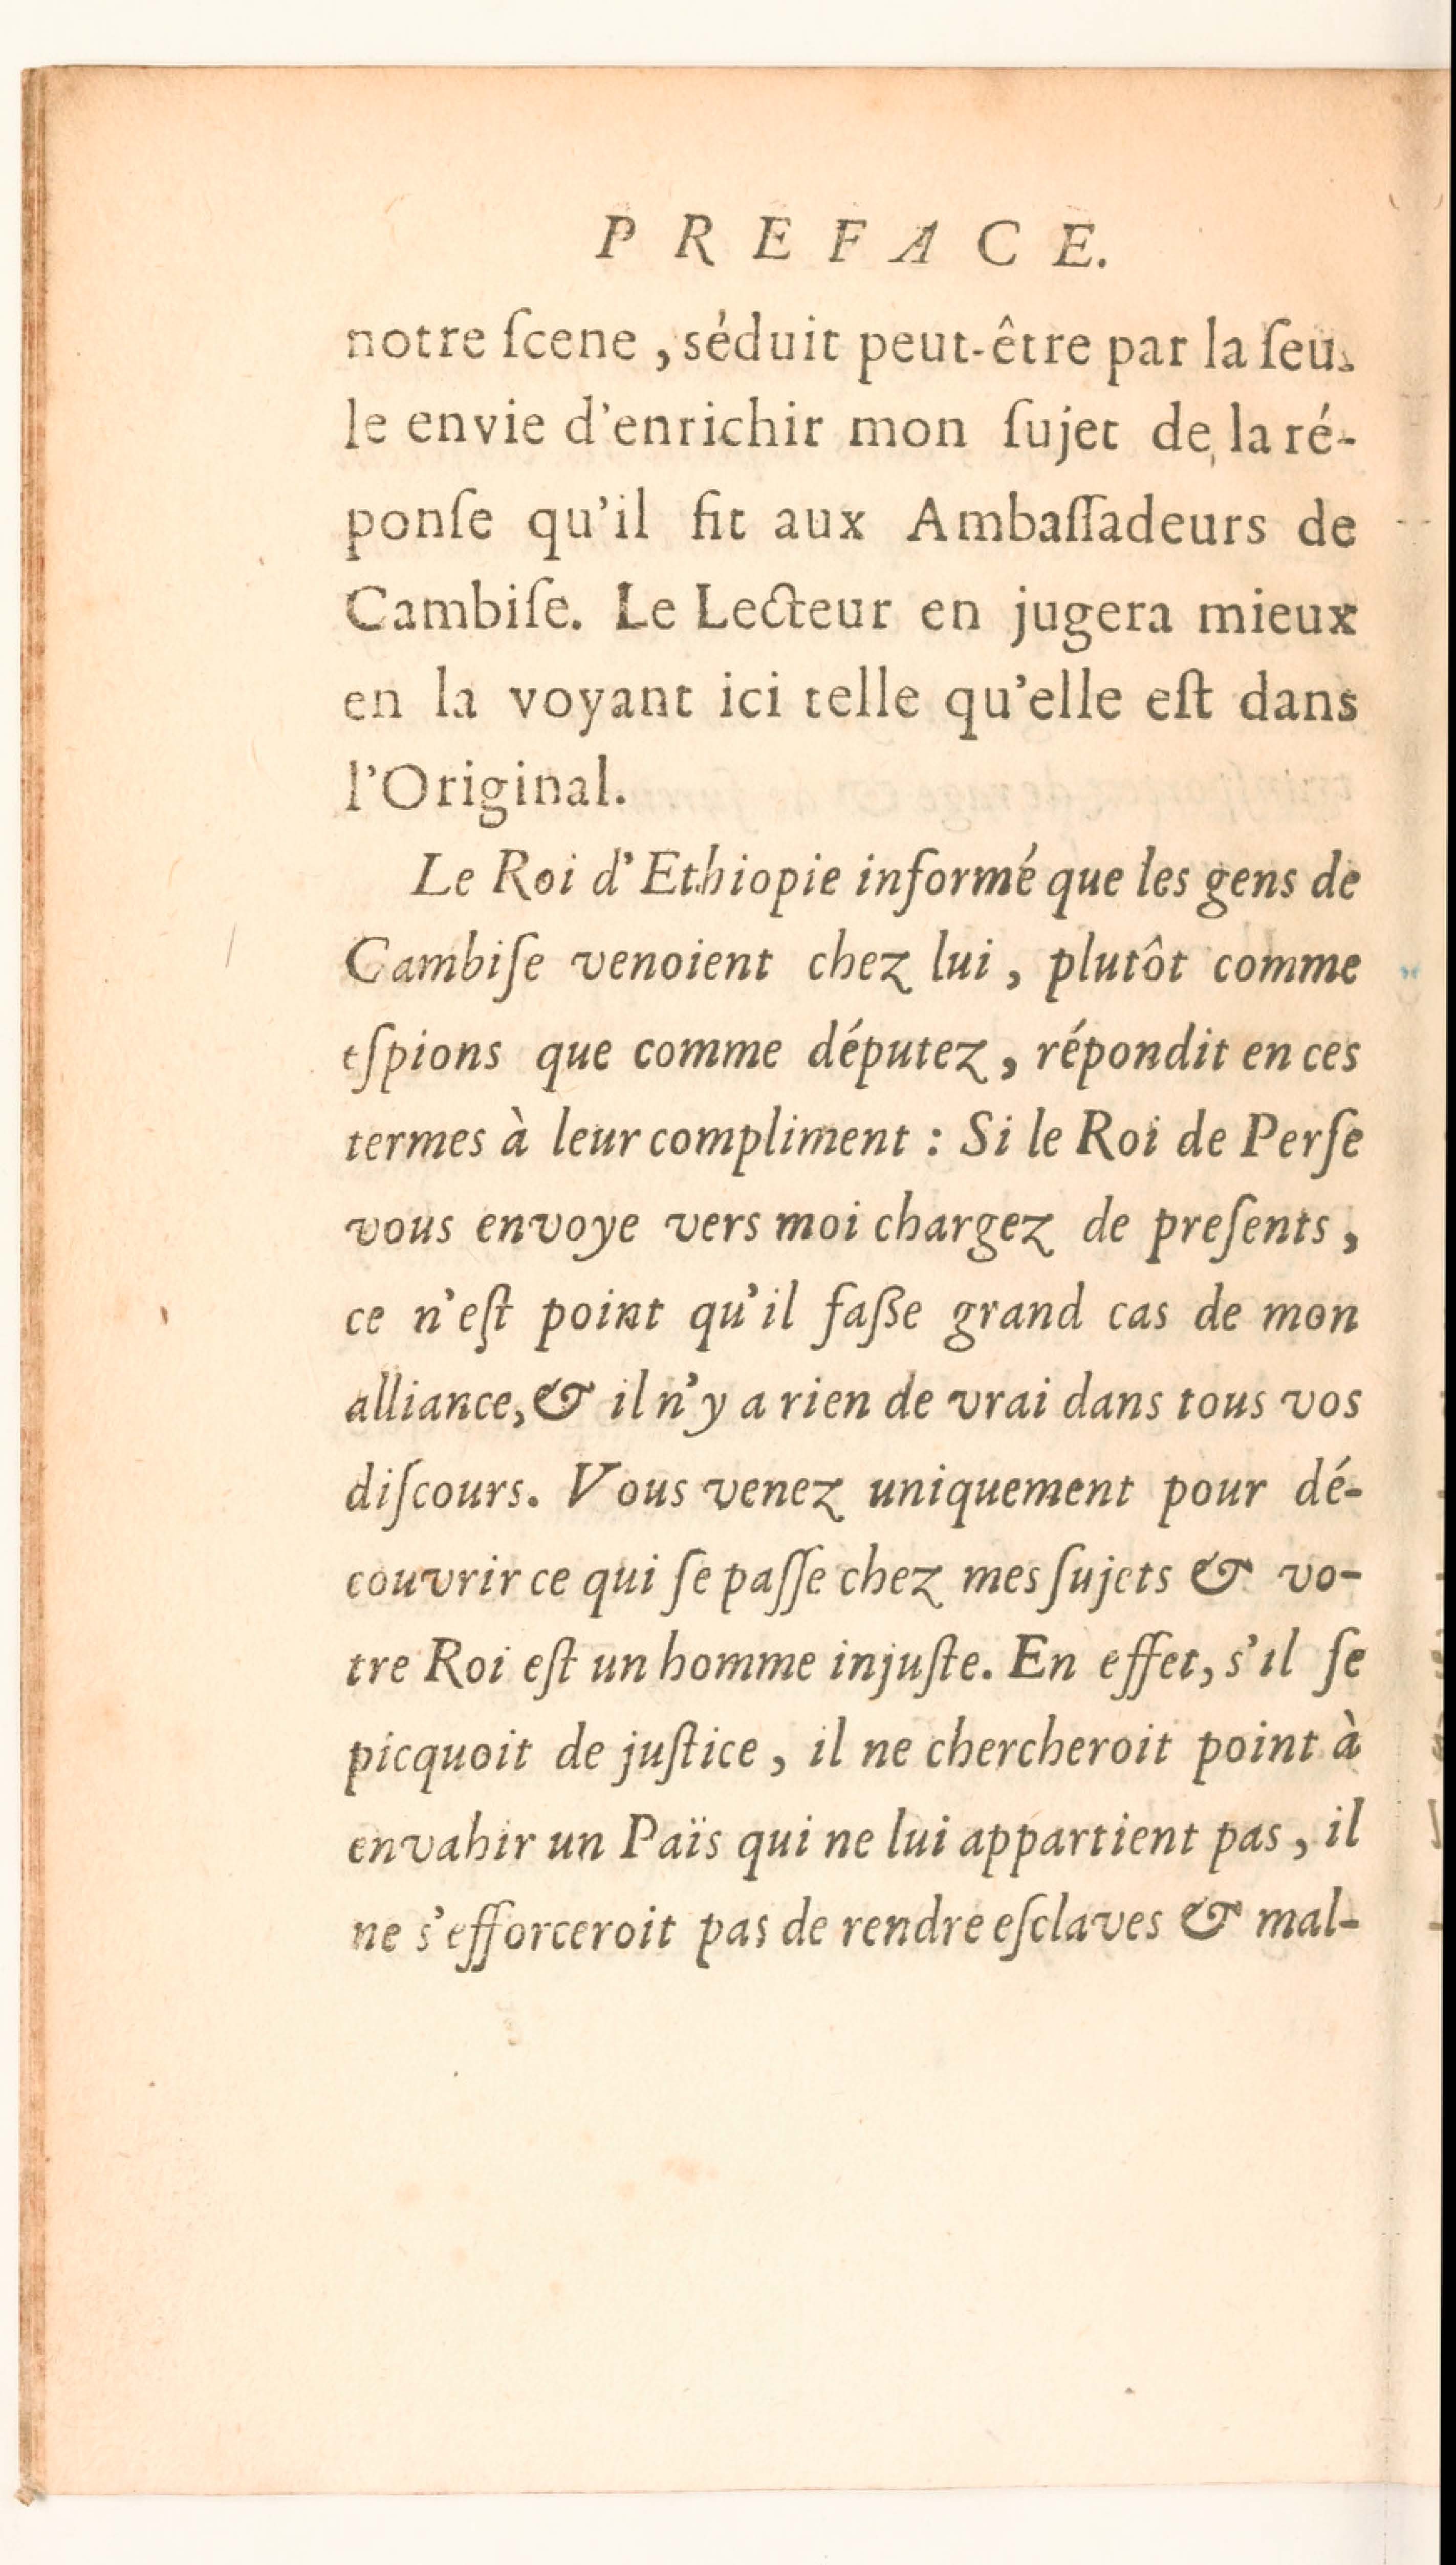 PREFACE.
notre ſcene, séduit peut-être par la ſeu-
le envie d'enrichir mon ſujet de la ré-
ponſe qu'il fit aux Ambaſſadeurs de
Cambiſe. Le Lecteur en jugera mieux
en la voyant ici telle qu'elle eſt dans
l'Original.
Le Roi d'Ethiopie informé que les gens de
Cambiſe venoient chez lui, plutôt comme
eſpions que comme députez, répondit en ces
termes à leur compliment : Si le Roi de Perſe
vous envoye vers moi chargez de preſents,
ce n'eſt point qu'il faſse grand cas de mon
alliance, & il n'y a rien de vrai dans tous vos
diſcours. Vous venez uniquement pour dé-
couvrir ce qui ſe paſſe chez mes ſujets & vo-
tre Roi eſt un homme injuſte. En effet, s'il ſe
picquoit de juſtice, il ne chercheroit point à
envahir un Païs qui ne lui appartient pas, il
ne s'efforceroit pas de rendre eſclaves & mal-